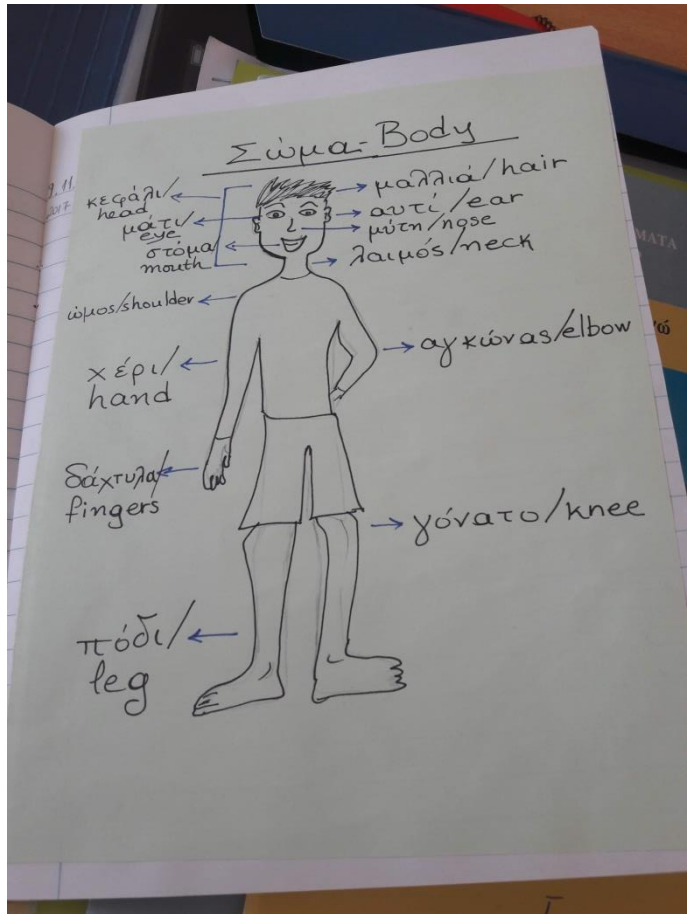 Σώμα-Body
9.11
2017
κεφάλι/
head
μάτι/
eye
στόμα/
mouth
ώμος/shoulder
χέρι/
hand
δάχτυλα/
fingers
πόδι/
leg
μαλλιά/hair
αυτί/ear
μύτη/nose
λαιμός/neck
αγκώνας/elbow
γόνατο/knee
ΜΑΤΑ